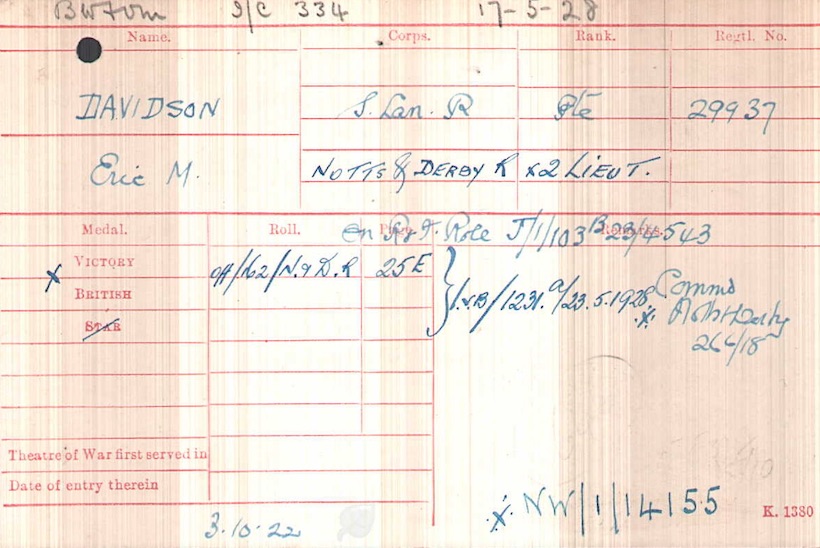 BWfom S/C 334 17-5-28
Name. Corps. Rank. Regtl. No.
DAVIDSON S. Lan. R Pte 29937
Eric M. NOTTS & DERBY R x2 LIEUT.
Medal. Roll. Page. Remarks.
On R & F. Role J/1/103 B 23/4543
x VICTORY Off/162/N. & D. R 25E
BRITISH I.V.B/1231. 9/23.5.1928 Commd
STAR x Notts & Derby
26/6/18
Theatre of War first served in
Date of entry therein
x NW/1/14155
K. 1380
3.10.22